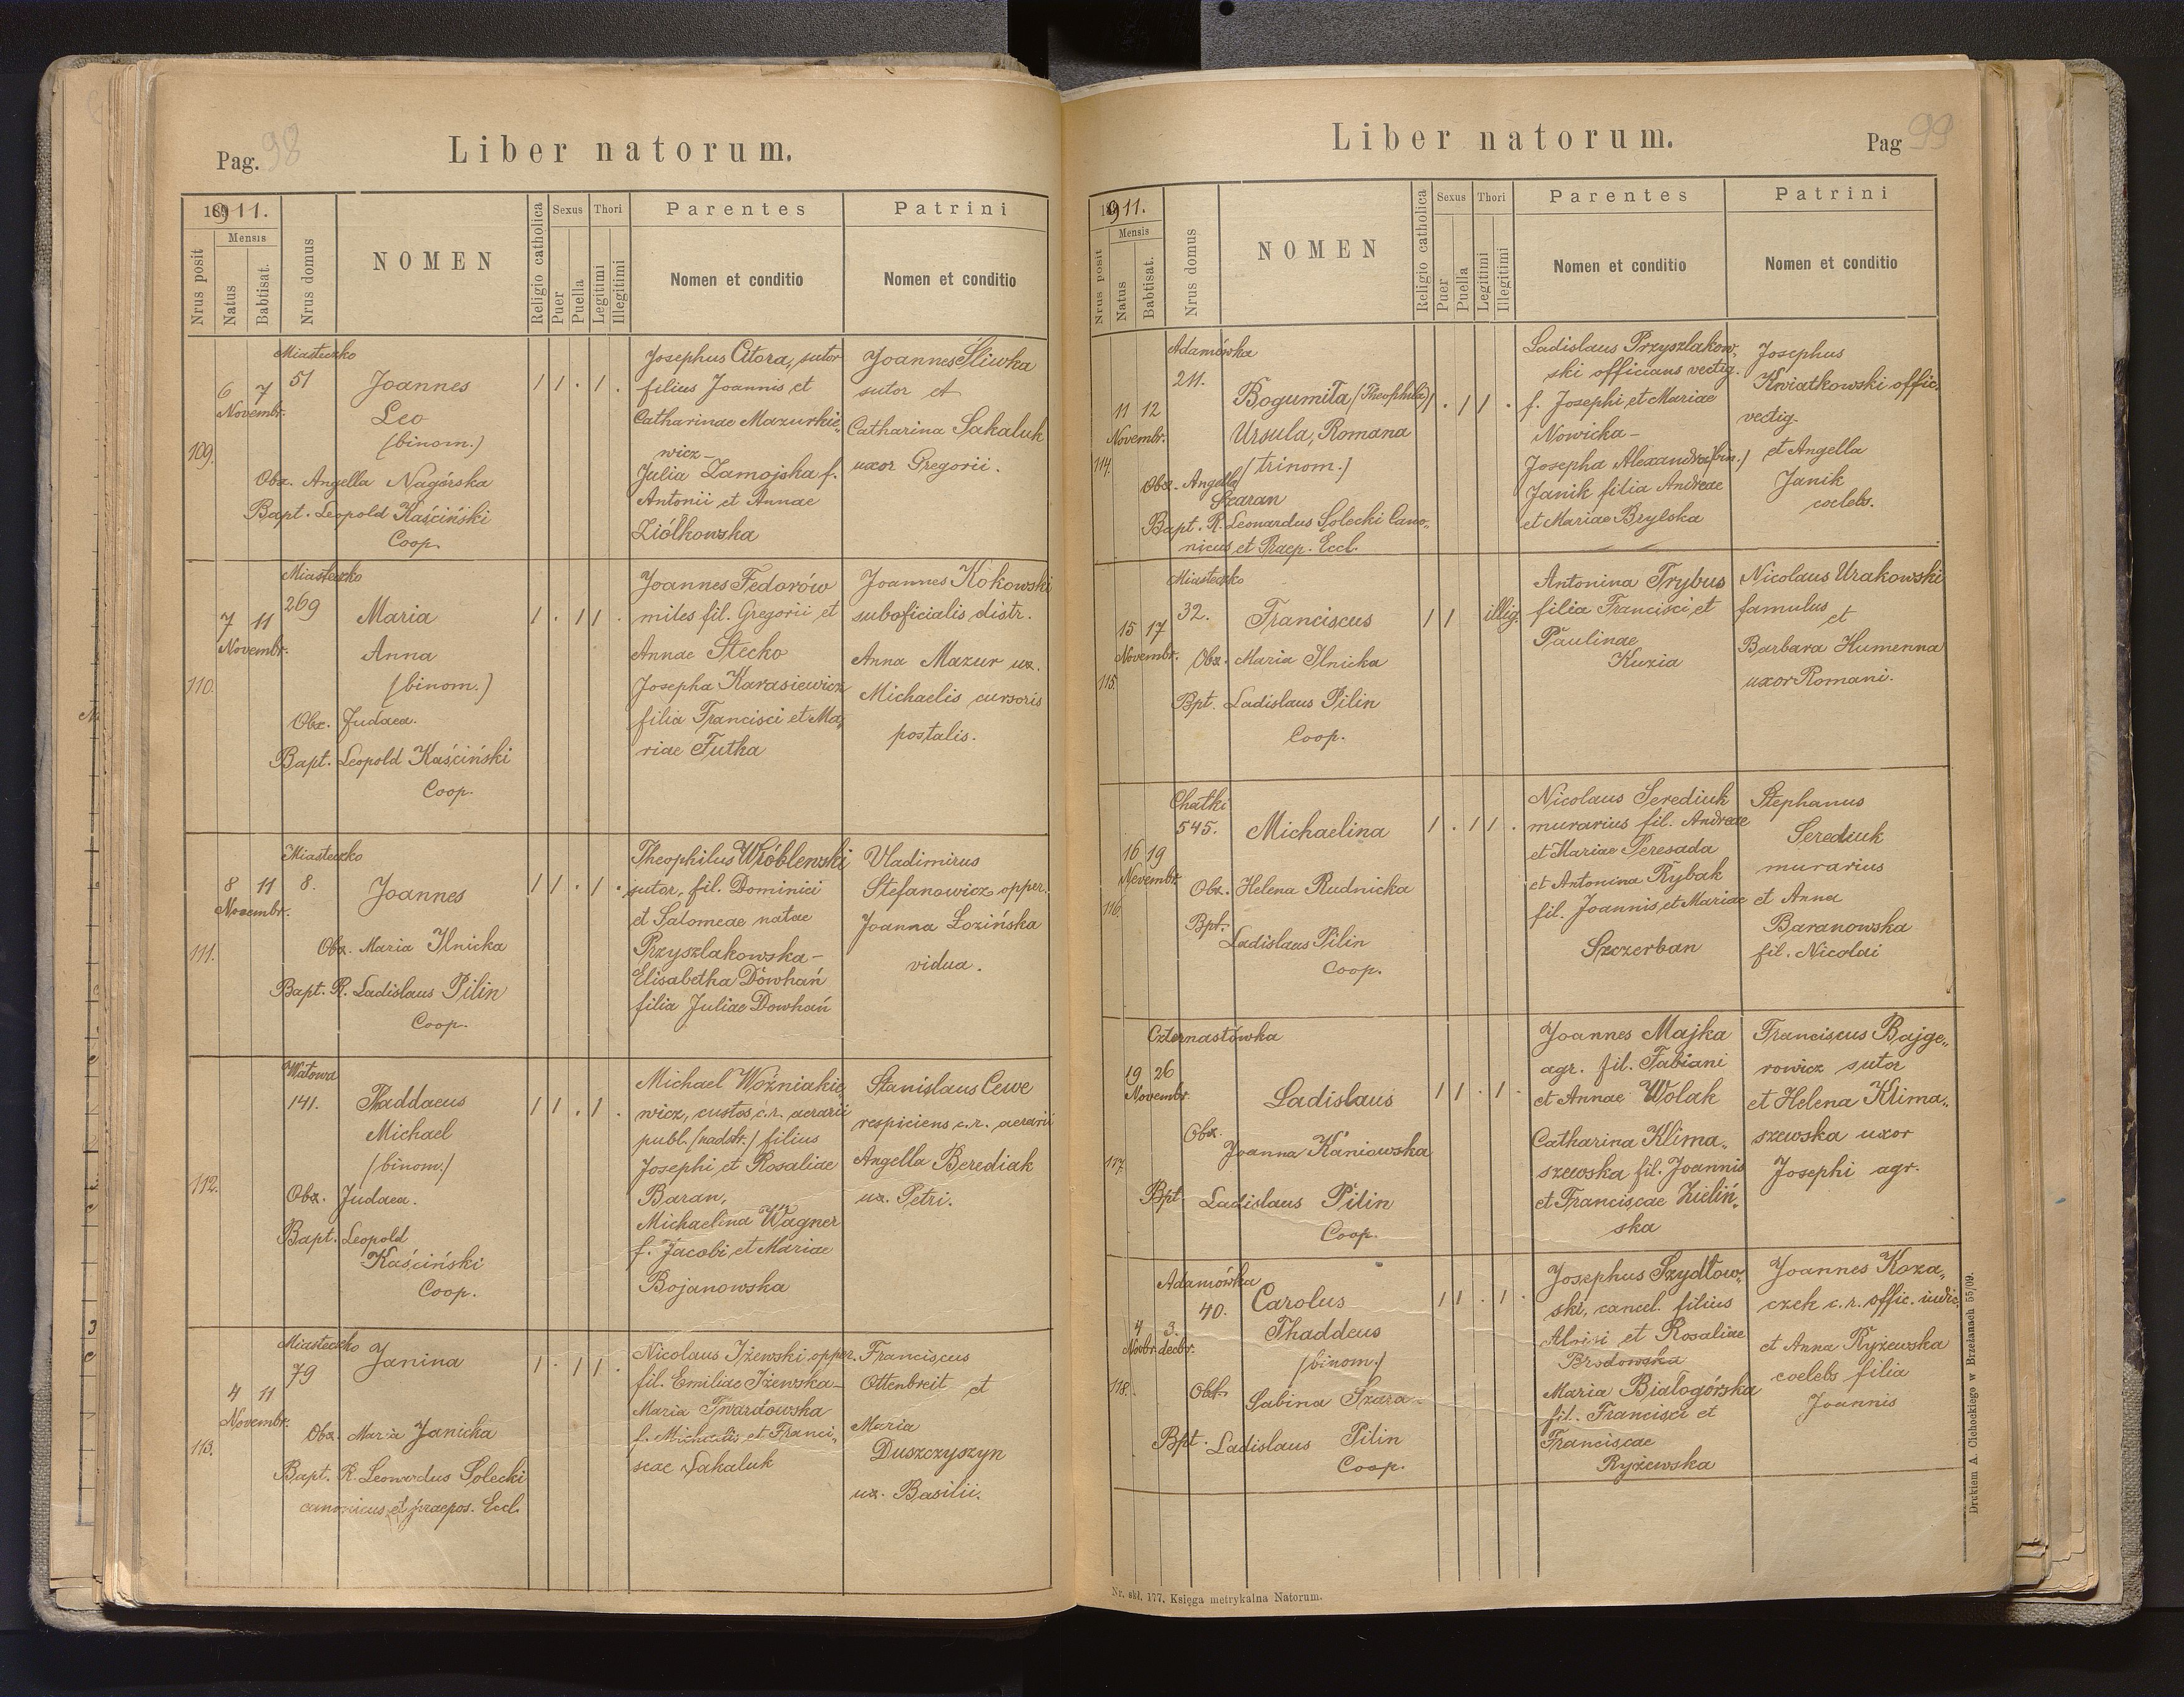 Pag. 98
Liber natorum.
1911.
Mensis
Nrus posit
Natus
Babtisat.
Nrus domus
NOMEN
Religio catholica
Sexus
Puer
Puella
Thori
Legitimi
Illegitimi
Parentes
Nomen et conditio
Patrini
Nomen et conditio
109.
6 7
Novembr.
Miasteczko
51
Joannes
Leo
(binom.)
Obx. Angella Nagórska
Bapt. Leopold Kaściński
Coop.
1 1 . 1 .
Josephus Citora, sutor
filius Joannis et
Catharinae Mazurkie„
wicz –
Julia Zamojska f.
Antonii et Annae
Ziółkowska
Joannes Śliwka
sutor et
Catharina Sakaluk
uxor Gregorii.
110.
7 11
Novembr.
Miasteczko
269
Maria
Anna
(binom.)
Obx. Judaea.
Bapt. Leopold Kaściński
Coop.
1 . 1 1 .
Joannes Fedorów
miles fil. Gregorii et
Annae Stecko
Josepha Karasiewicz
filia Francisci et Ma„
riae Futka
Joannes Kokowski
suboficialis distr.
Anna Mazur ux.
Michaelis cursoris
postalis.
111.
8 11
Novembr.
Miasteczko
8.
Joannes
Obx. Maria Ilnicka
Bapt. R. Ladislaus Pilin
Coop.
1 1 . 1 .
Theophilus Wróblewski
sutor, fil. Dominici
et Salomeae natae
Przyszlakowska –
Elisabetha Dowhań
filia Juliae Dowhań
Vladimirus
Stefanowicz opper.
Joanna Łozińska
vidua.
112.
Watowa
141.
Thaddaeus
Michael
(binom.)
Obx. Judaea.
Bapt. Leopold
Kaściński
Coop.
1 1 . 1 .
Michael Woźniakie„
wicz, custos c.r. aerarii
publ. (nadstr.) filius
Josephi et Rosaliae
Baran,
Michaelina Wagner
f. Jacobi et Mariae
Bojanowska
Stanislaus Cewe
respiciens c.r. aerarii
Angella Berediak
ux. Petri.
113.
4 11
Novembr.
Miasteczko
79
Janina
Obx. Maria Janicka
Bapt. R. Leonardus Solecki
canonicus et praepos. Eccl.
1 . 1 1 .
Nicolaus Iżewski opper.
fil. Emiliae Iżewska –
Maria Twardowska
f. Michaelis et Franci„
scae Sakaluk
Franciscus
Ottenbreit et
Maria
Duszczyszyn
ux. Basilii.
Liber natorum.
Pag 99
1911.
Mensis
Nrus posit
Natus
Babtisat.
Nrus domus
NOMEN
Religio catholica
Sexus
Puer
Puella
Thori
Legitimi
Illegitimi
Parentes
Nomen et conditio
Patrini
Nomen et conditio
114.
11 12
Novembr.
Adamówka
211.
Bogumiła (Theophila)
Ursula, Romana
(trinom.)
Obx. Angella
Szaran
Bapt. R. Leonardus Solecki Cano„
nicus et Praep. Eccl.
1 . 1 1 .
Ladislaus Przyszlakow„
ski officians vectig.
f. Josephi et Mariae
Nowicka –
Josepha Alexandra (bin.)
Janik filia Andreae
et Mariae Brylska
Josephus
Kwiatkowski offic.
vectig.
et Angella
Janik
coelebs.
115.
15 17
Novembr.
Miasteczko
32.
Franciscus
Obx. Maria Ilnicka
Bpt. Ladislaus Pilin
Coop.
1 1 illig.
Antonina Trybus
filia Francisci et
Paulinae
Kuzia
Nicolaus Urakowski
famulus
et
Barbara Humenna
uxor Romani.
116.
16 19
Novembr.
Chatki
545.
Michaelina
Obx. Helena Rudnicka
Bpt.
Ladislaus Pilin
Coop.
1 . 1 1 .
Nicolaus Serediuk
murarius fil. Andreae
et Mariae Peresada
et Antonina Rybak
fil. Joannis et Mariae
Szczerban
Stephanus
Serediuk
murarius
et Anna
Baranowska
fil. Nicolai
117.
19 26
Novembr.
Czternastówka
Ladislaus
Obx.
Joanna Kaniowska
Bpt. Ladislaus Pilin
Coop.
1 1 . 1 .
Joannes Majka
agr. fil. Fabiani
et Annae Wolak
Catharina Klima„
szewska fil. Joannis
et Franciscae Zieliń„
ska
Franciscus Bajge„
rowicz sutor
et Helena Klima„
szewska uxor
Josephi agr.
118.
4 3.
Novbr. decbr.
Adamówka
40.
Carolus
Thaddeus
(binom.)
Obst.
Sabina Szara –
Bpt. Ladislaus Pilin
Coop.
1 1 . 1 .
Josephus Szydłow„
ski, cancel. filius
Aloisi et Rosaliae
Brodowska
Maria Białogórska
fil. Francisci et
Franciscae
Ryżewska
Joannes Koza„
czek c.r. offic. iudic.
et Anna Ryżewska
coelebs filia
Joannis
Drukiem A. Cichockiego w Brzeżanach 55/09.
Nr. skł. 177. Księga metrykalna Natorum.